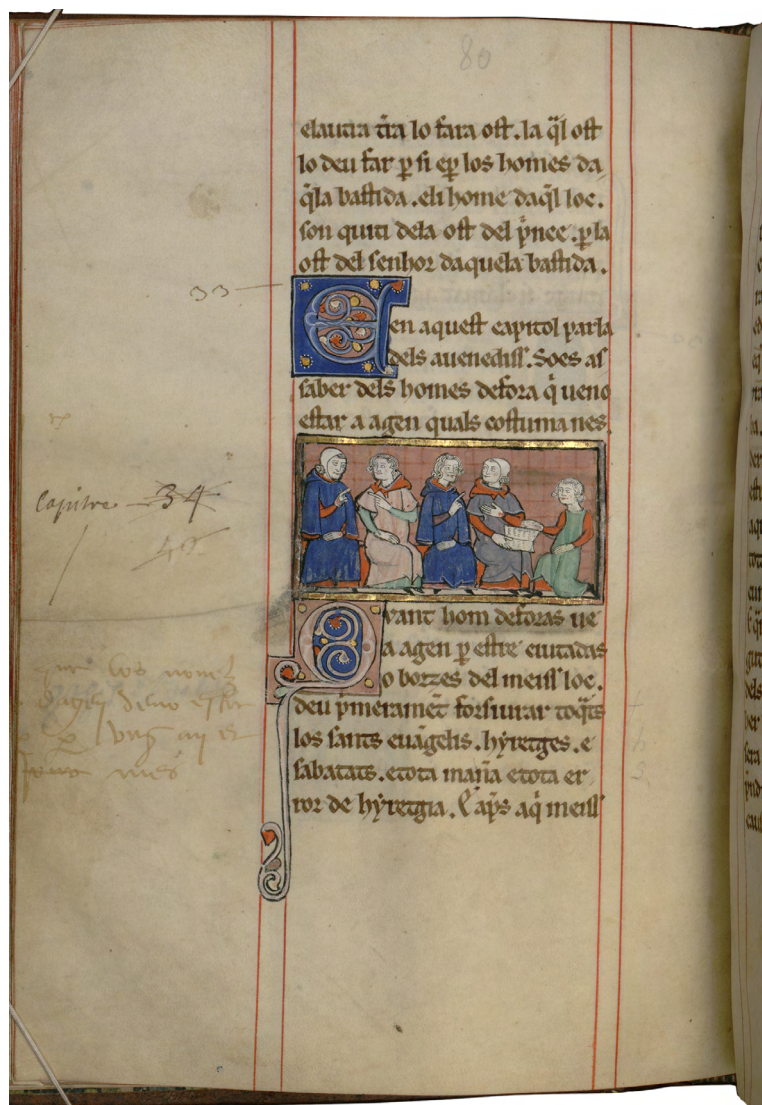 80
elautra tr̃a lo fara ost. la q̃l ost
lo deu far ꝑ si eꝑ los homes da
q̃la bastida. eli home daq̃l loc.
son quiti dela ost del p̃nce. ꝑ la
ost del senhor daquela bastida.
33
En aquest capitol parla
dels auenediss. Soes as
saber dels homes defora q̃ ueno
estar a agen quals costuma nes.
Capitre 34
Quant hom deforas ue
a agen ꝑ estre ciutadas
o borzes del meiss loc.
deu p̃merament̃ forsiurar toq̃ts
los sants euãgelis. hyretges. e
sabatats. etota maña etota er
ror de hyretgia. E ap̃s aq̃ meiss